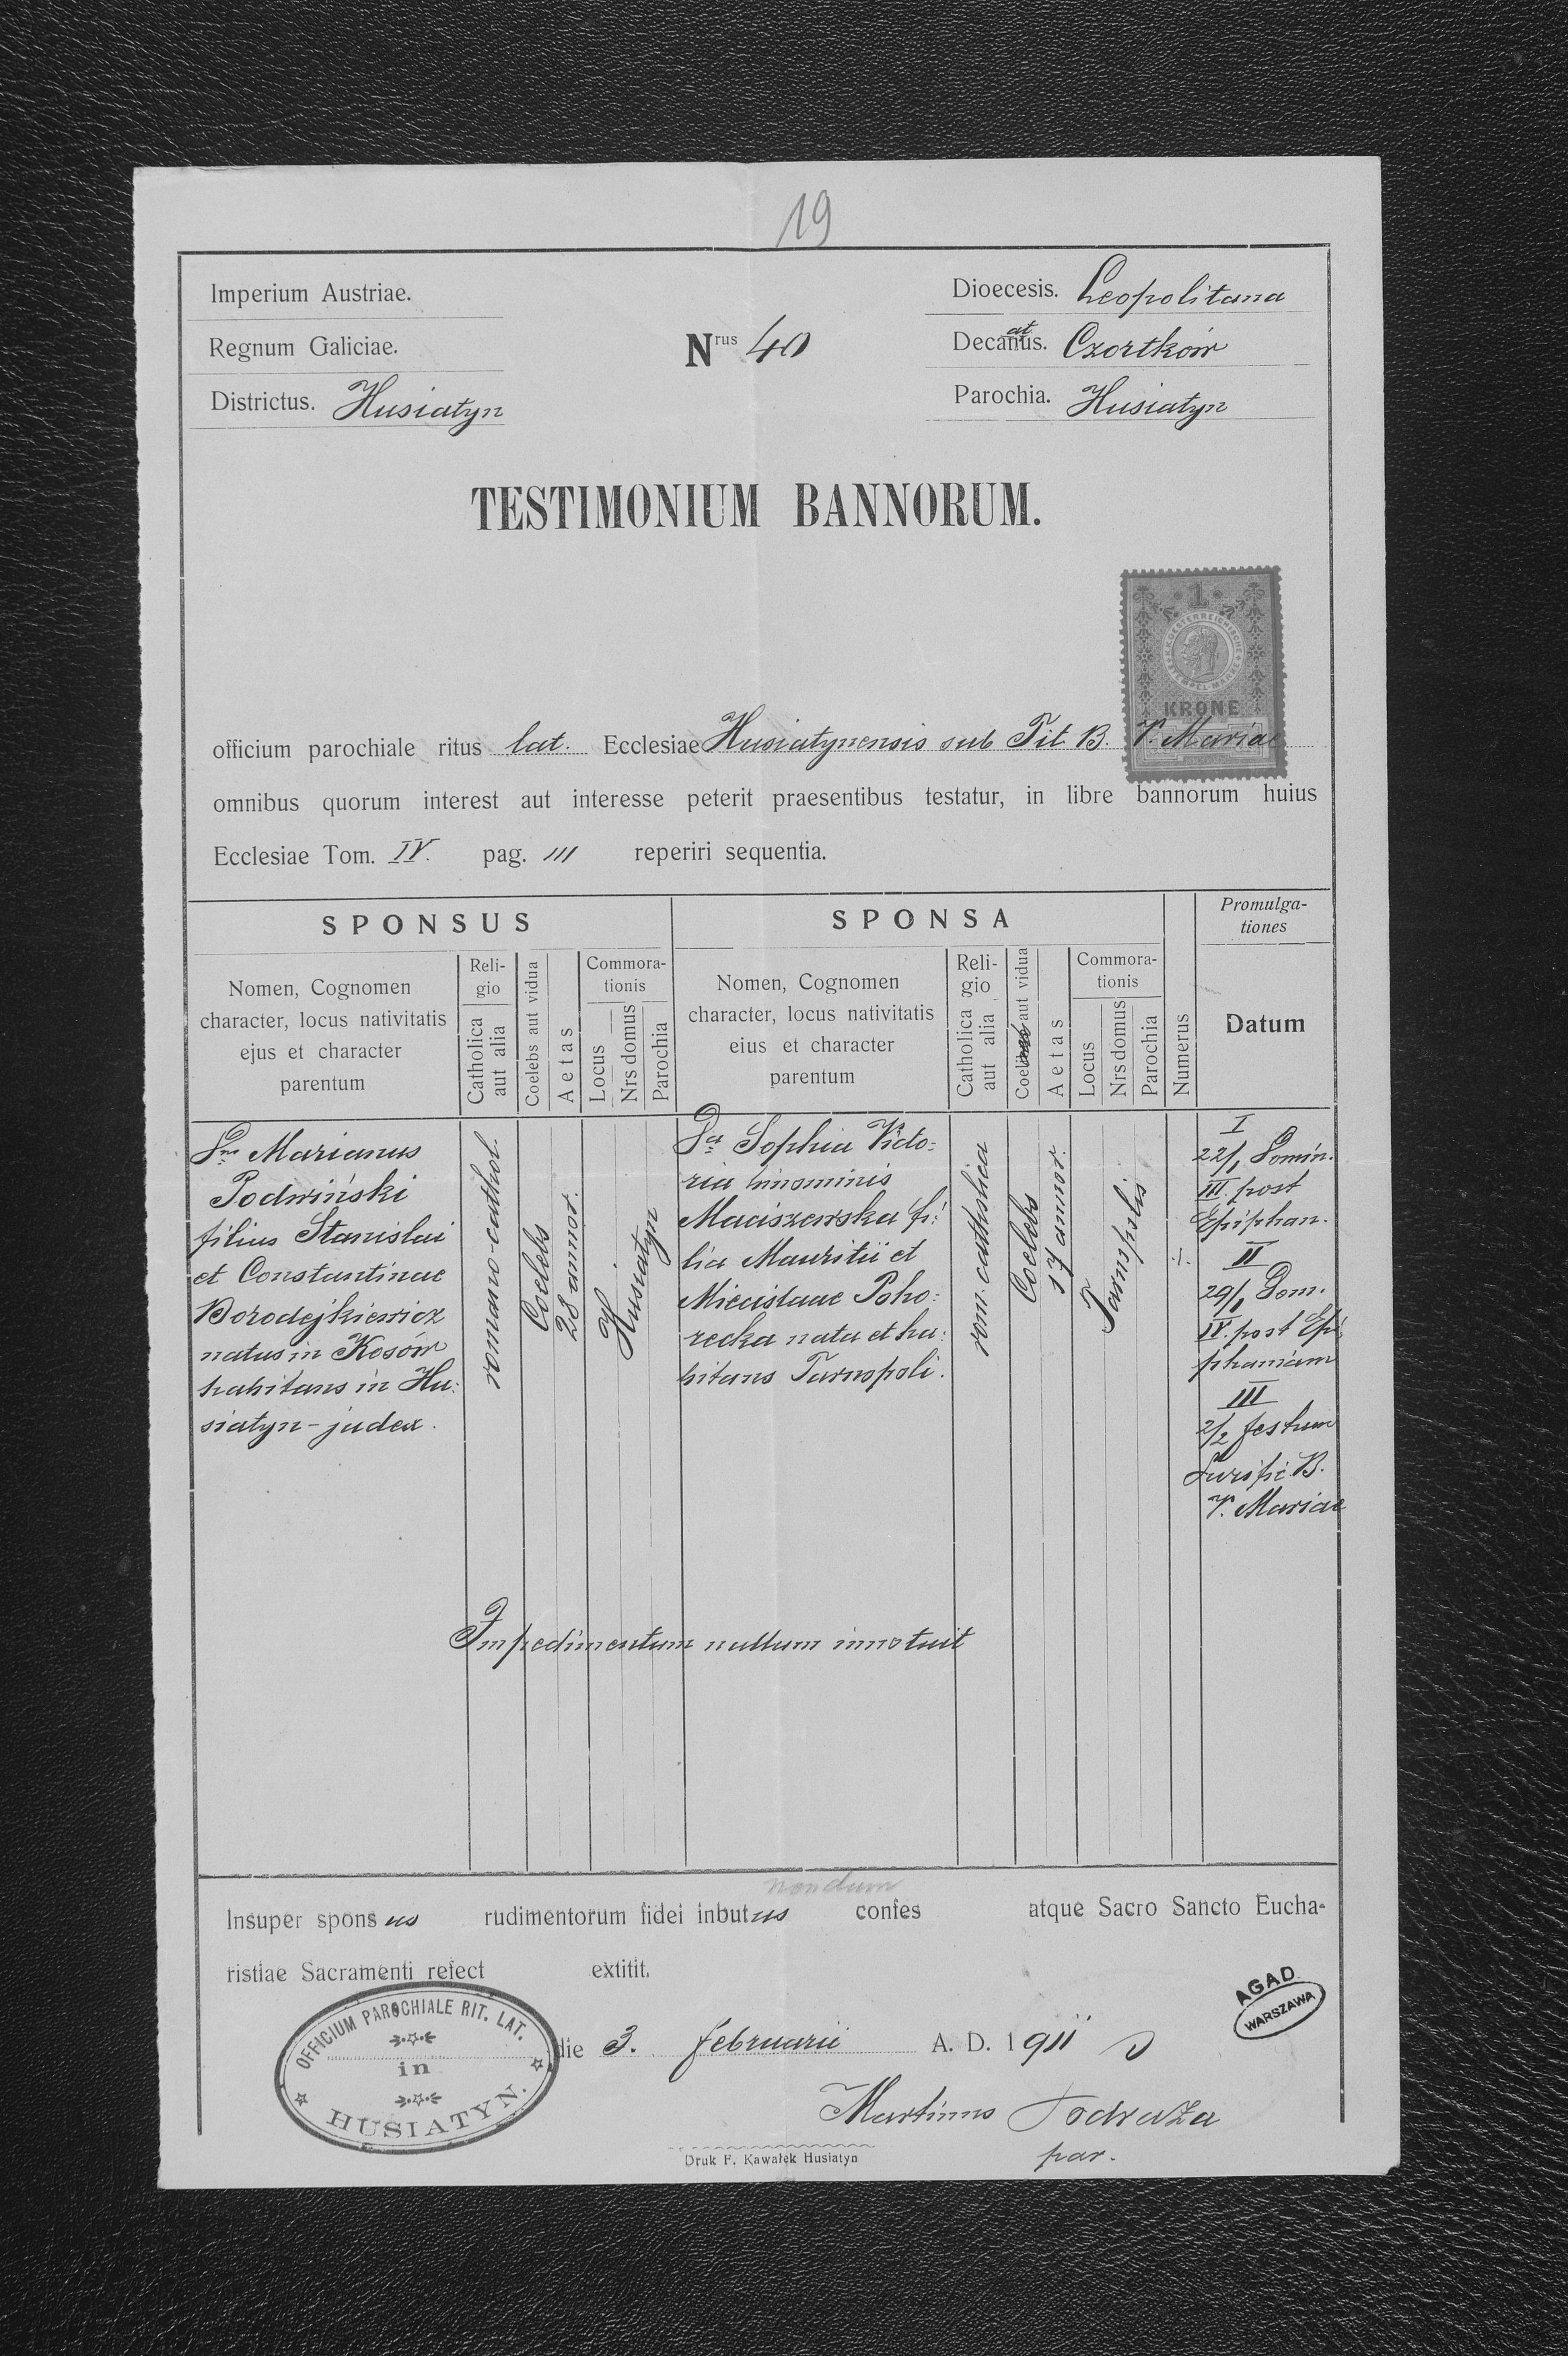 19
Imperium Austriae.
Regnum Galiciae.
Districtus. Husiatyn
Nrus 40
Dioecesis. Leopolitana
Decanus. at Czortków
Parochia. Husiatyn
TESTIMONIUM BANNORUM.
1
K.K. OESTERREICHISCHE STEMPEL-MARKE
KRONE
officium parochiale ritus lat. Ecclesiae Husiatynensis sub Tit B. V. Mariae
omnibus quorum interest aut interesse peterit praesentibus testatur, in libre bannorum huius
Ecclesiae Tom. IV. pag. 111 reperiri sequentia.
SPONSUS
Nomen, Cognomen
character, locus nativitatis
ejus et character
parentum
Reli-
gio
Catholica
aut alia
Coelebs aut vidua
Aetas
Commora-
tionis
Locus
Nrs domus
Parochia
SPONSA
Nomen, Cognomen
character, locus nativitatis
eius et character
parentum
Reli-
gio
Catholica
aut alia
aut vidua
Aetas
Commora-
tionis
Locus
Nrs domus
Parochia
Numerus
Promulga-
tiones
Datum
Dnus Marianus
Podwiński
filius Stanislai
et Constantinae
Borodejkiewicz
natus in Kosów
habitans in Hu:
siatyn - judex.
romano-cathol.
Coelebs
28 annor.
Husiatyn
Da Sophia Victo:
ria binominis
Maciszewska fi:
lia Mauritii et
Miecislaae Poho:
recka nata et ha:
bitans Tarnopoli.
rom. catholica
Coelebs
17 annor.
Tarnopolis
·/.
I
22/1 Domin.
III. post
Epiphan.
II
29/1 Dom.
IV. post Epi
phaniam
III
2/2 festum
Purifi B.
V. Mariae
Impedimentum nullum innotuit
nondum
Insuper sponsus rudimentorum fidei inbutus confes atque Sacro Sancto Eucha-
ristiae Sacramenti refect extitit.
OFFICIUM PAROCHIALE RIT. LAT.
in
HUSIATYN.
die 3. februarii A. D. 1911
AGAD
WARSZAWA
Martinus Podraża
par.
Druk F. Kawałek Husiatyn